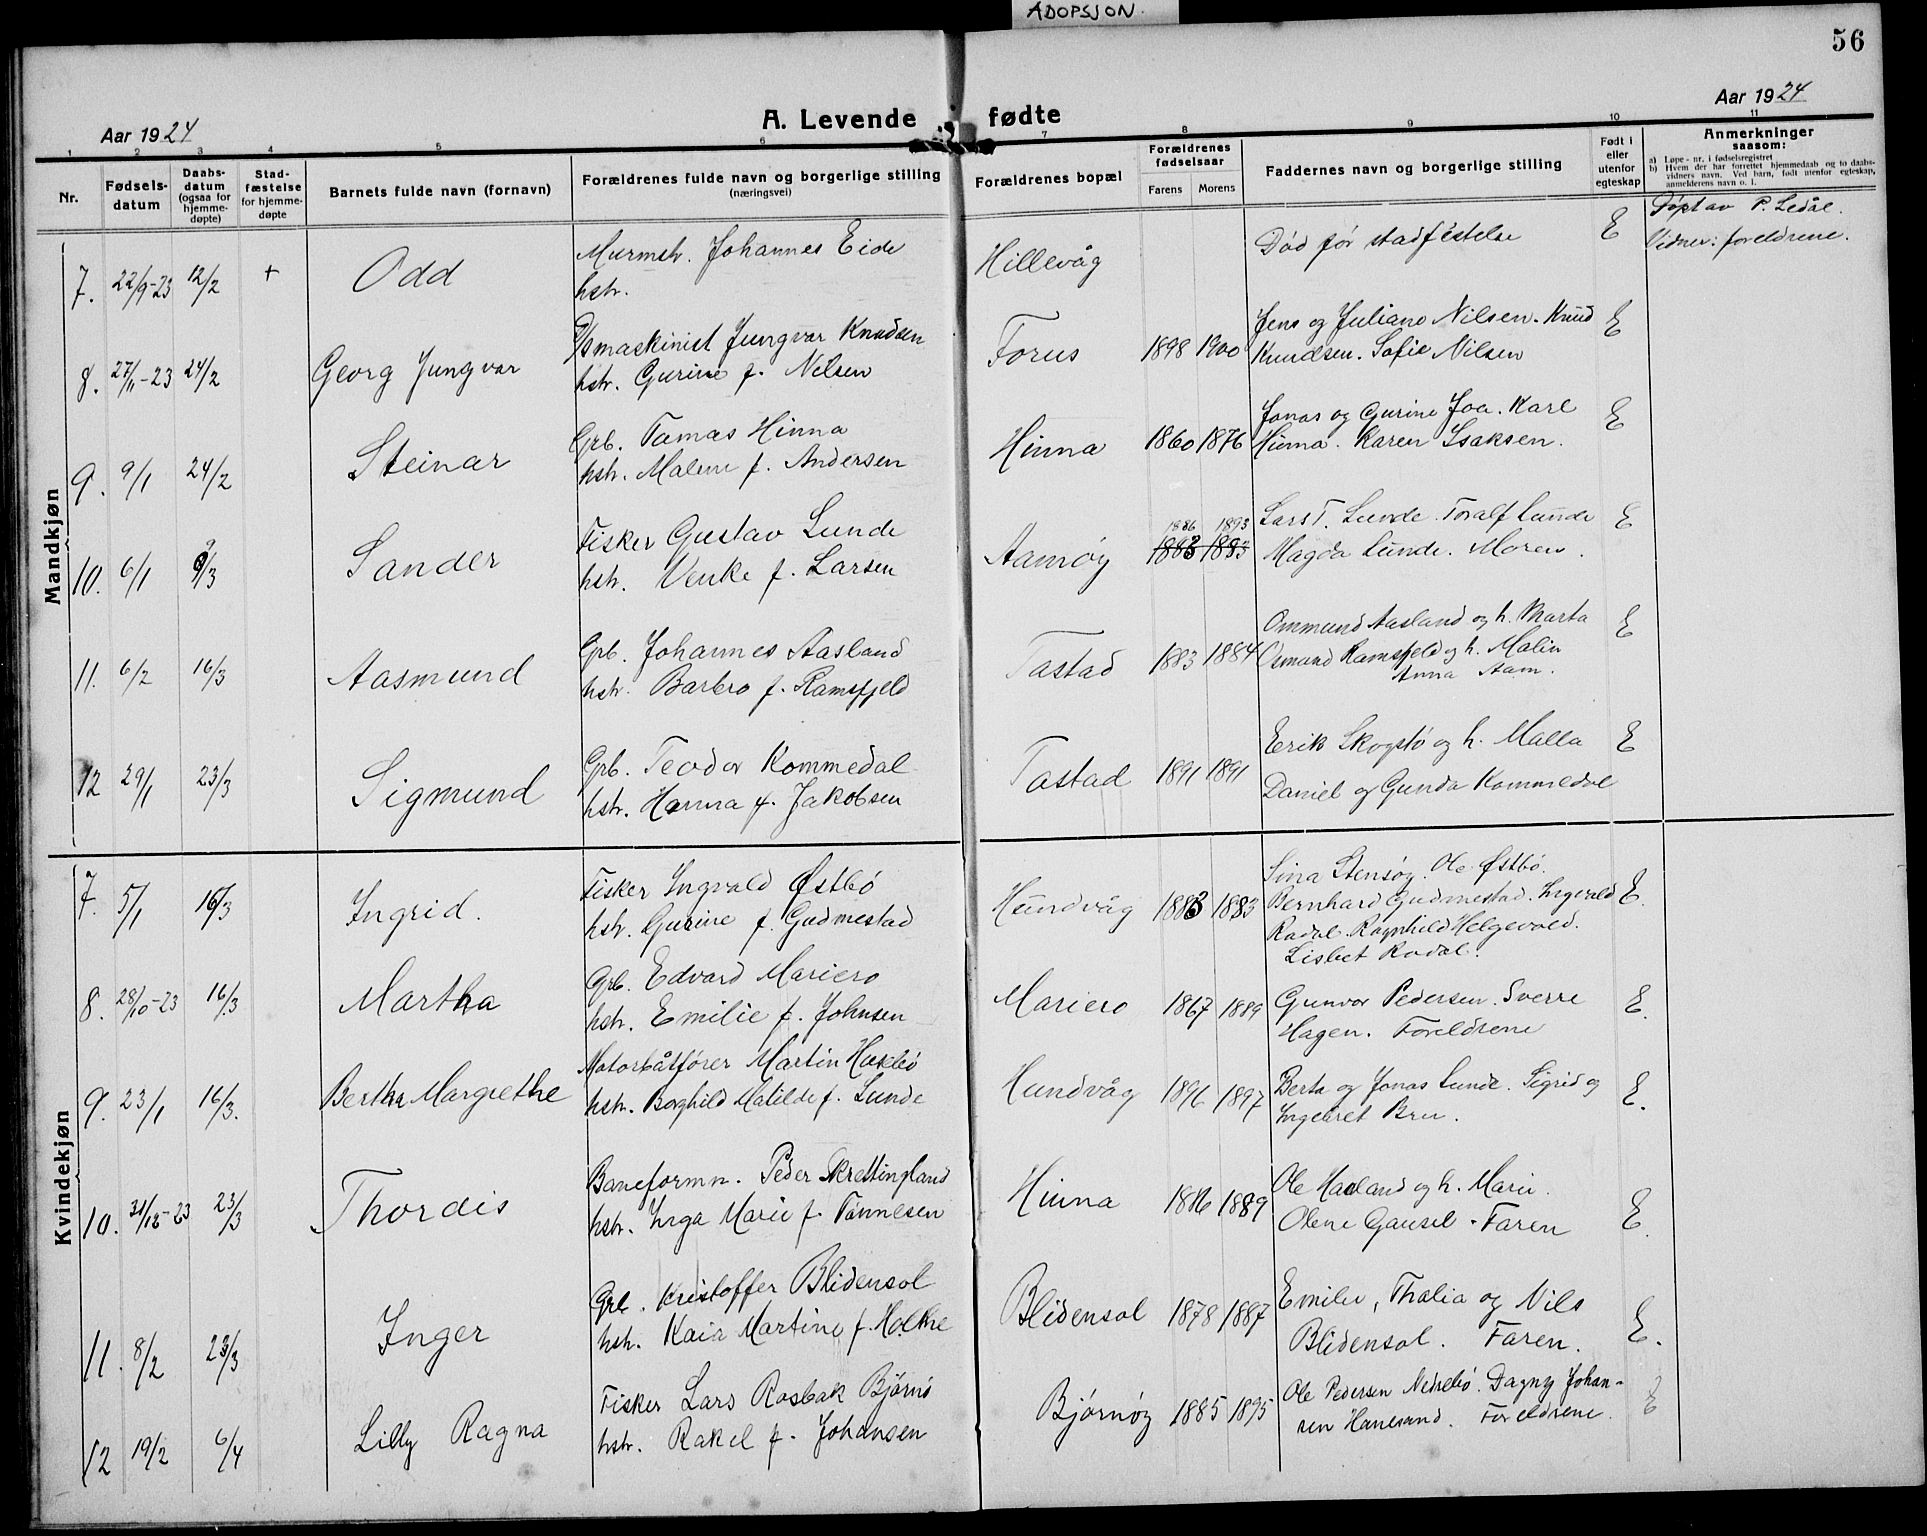 ADOPSJON.
56
Aar 1924
A. Levende fødte
Aar 1924
1 2 3 4 5 6 7 8 9 10 11
Nr.
Fødsels-
datum
Daabs-
datum
(ogsaa for
hjemme-
døpte)
Stad-
fæstelse
for hjemme-
døpte
Barnets fulde navn (fornavn)
Forældrenes fulde navn og borgerlige stilling
(næringsvei)
Forældrenes bopæl
Forældrenes
fødselsaar
Farens Morens
Faddernes navn og borgerlige stilling
Født i
eller
utenfor
egteskap
Anmerkninger
saasom:
a) Løpe-nr. i fødselsregistret
b) Hvem der har forrettet hjemmedaab og to daabs-
vidners navn. Ved barn, født utenfor egteskap,
anmelderens navn o. l.
Mandkjøn
7. 22/9-23 12/2 + Odd
Murmstr. Johannes Eide
hstr.
Hillevåg
Død før stadfestelse
E
Døpt av P. Ledål.
Vidner: foreldrene.
8. 27/11-23 24/2 Georg Jungvar
D/smaskinist Jungvar Knudsen
hstr. Gurine f. Nelsen
Forus 1898 1900
Jens og Juliane Nilsen. Knud
Knudsen. Sofie Nilsen
E
9. 9/1 24/2 Steinar
Grb. Tomas Hinna
hstr. Malene f. Andersen
Hinna 1860 1876
Jonas og Gurine Joa. Karl
Hinna. Karen Isaksen.
E
10. 6/1 9/3 Sander
Fisker Gustav Lunde
hstr. Venke f. Larsen
Aamøy
1886 1893
1883 1883
Lars T. Lunde. Toralf Lunde
Magda Lunde. Moren.
E
11. 6/2 16/3 Aasmund
Grb. Johannes Aasland
hstr. Barbro f. Ramsfjeld
Tastad 1883 1884
Ommund Aasland og h. Marta
Osmund Ramsfjeld og h. Malin
Anna Aam.
E
12 29/1 23/3 Sigmund
Grb. Teodor Kommedal
hstr. Hanna f. Jakobsen
Tastad 1891 1891
Erik Skogstø og h. Malla
Daniel og Gunda Kommedal
E
Kvindekjøn
7. 5/1 16/3 Ingrid.
Fisker Ingvald Østbø
hstr. Gurine f. Gudmestad
Hundvåg 1883 1883
Sina Stensøy. Ole Østbø.
Bernhard Gudmestad. Ingvald
Rodal. Ragnhild Helgevold.
Lisbet Rodal.
E.
8. 28/10-23 16/3 Martha
Grb. Edvard Mariero
hstr. Emilie f. Johnsen
Mariero 1867 1889
Gunvor Pedersen. Sverre
Hagen. Foreldrene
E.
9. 23/1 16/3. Bertha Margrethe
Motorbåtfører Martin Husebø
hstr. Borghild Matilde f. Lunde
Hundvåg 1896 1897
Berta og Jonas Lunde. Sigrid og
Ingebret Bru.
E.
10. 31/12-23 23/3 Thordis
Baneformn. Peder Skrettingland
hstr. Inga Marie f. Tønnesen
Hinna 1886 1889
Ole Haaland og h. Marie.
Olene Gausel. Faren
E.
11. 8/2 23/3 Inger
Grb. Kristoffer Blidensol
hstr. Kaia Martine f. Holthe
Blidensol 1878 1887
Emilie, Thalia og Nils
Blidensol. Faren.
E.
12 19/2 6/4 Lilly Ragna
Fisker Lars Rosbak Bjørnø
hstr. Rakel f. Johansen
Bjørnøy 1885 1895
Ole Pedersen Nedrebø. Dagny Johan-
sen Hanesand. Foreldrene.
E